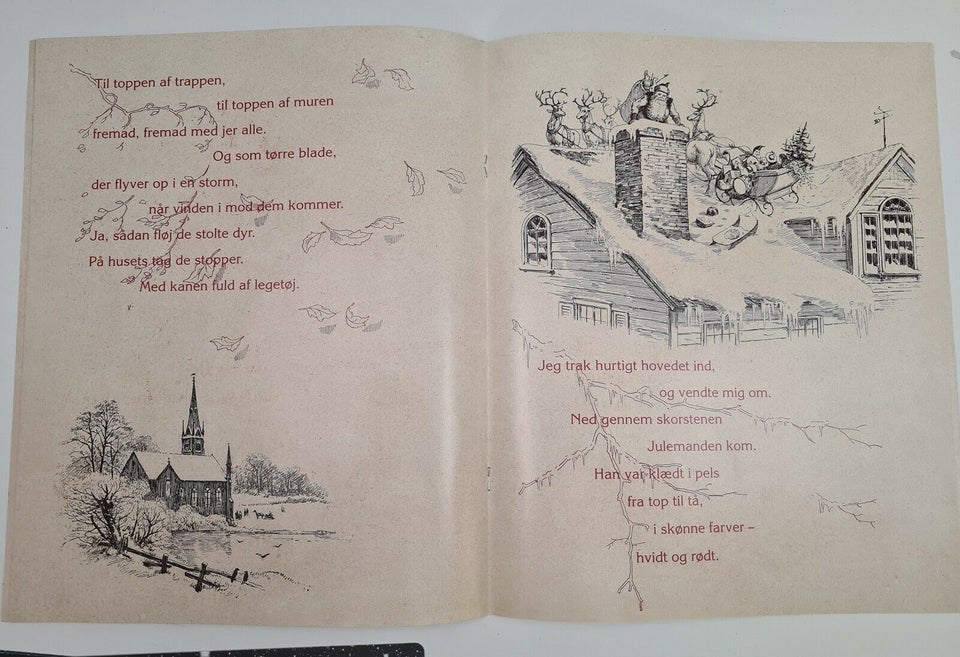 Til toppen af trappen,
til toppen af muren
fremad, fremad med jer alle.
Og som tørre blade,
der flyver op i en storm,
når vinden i mod dem kommer.
Ja, sådan fløj de stolte dyr.
På husets tag de stopper.
Med kanen fuld af legetøj.
Jeg trak hurtigt hovedet ind,
og vendte mig om.
Ned gennem skorstenen
Julemanden kom.
Han var klædt i pels
fra top til tå,
i skønne farver –
hvidt og rødt.